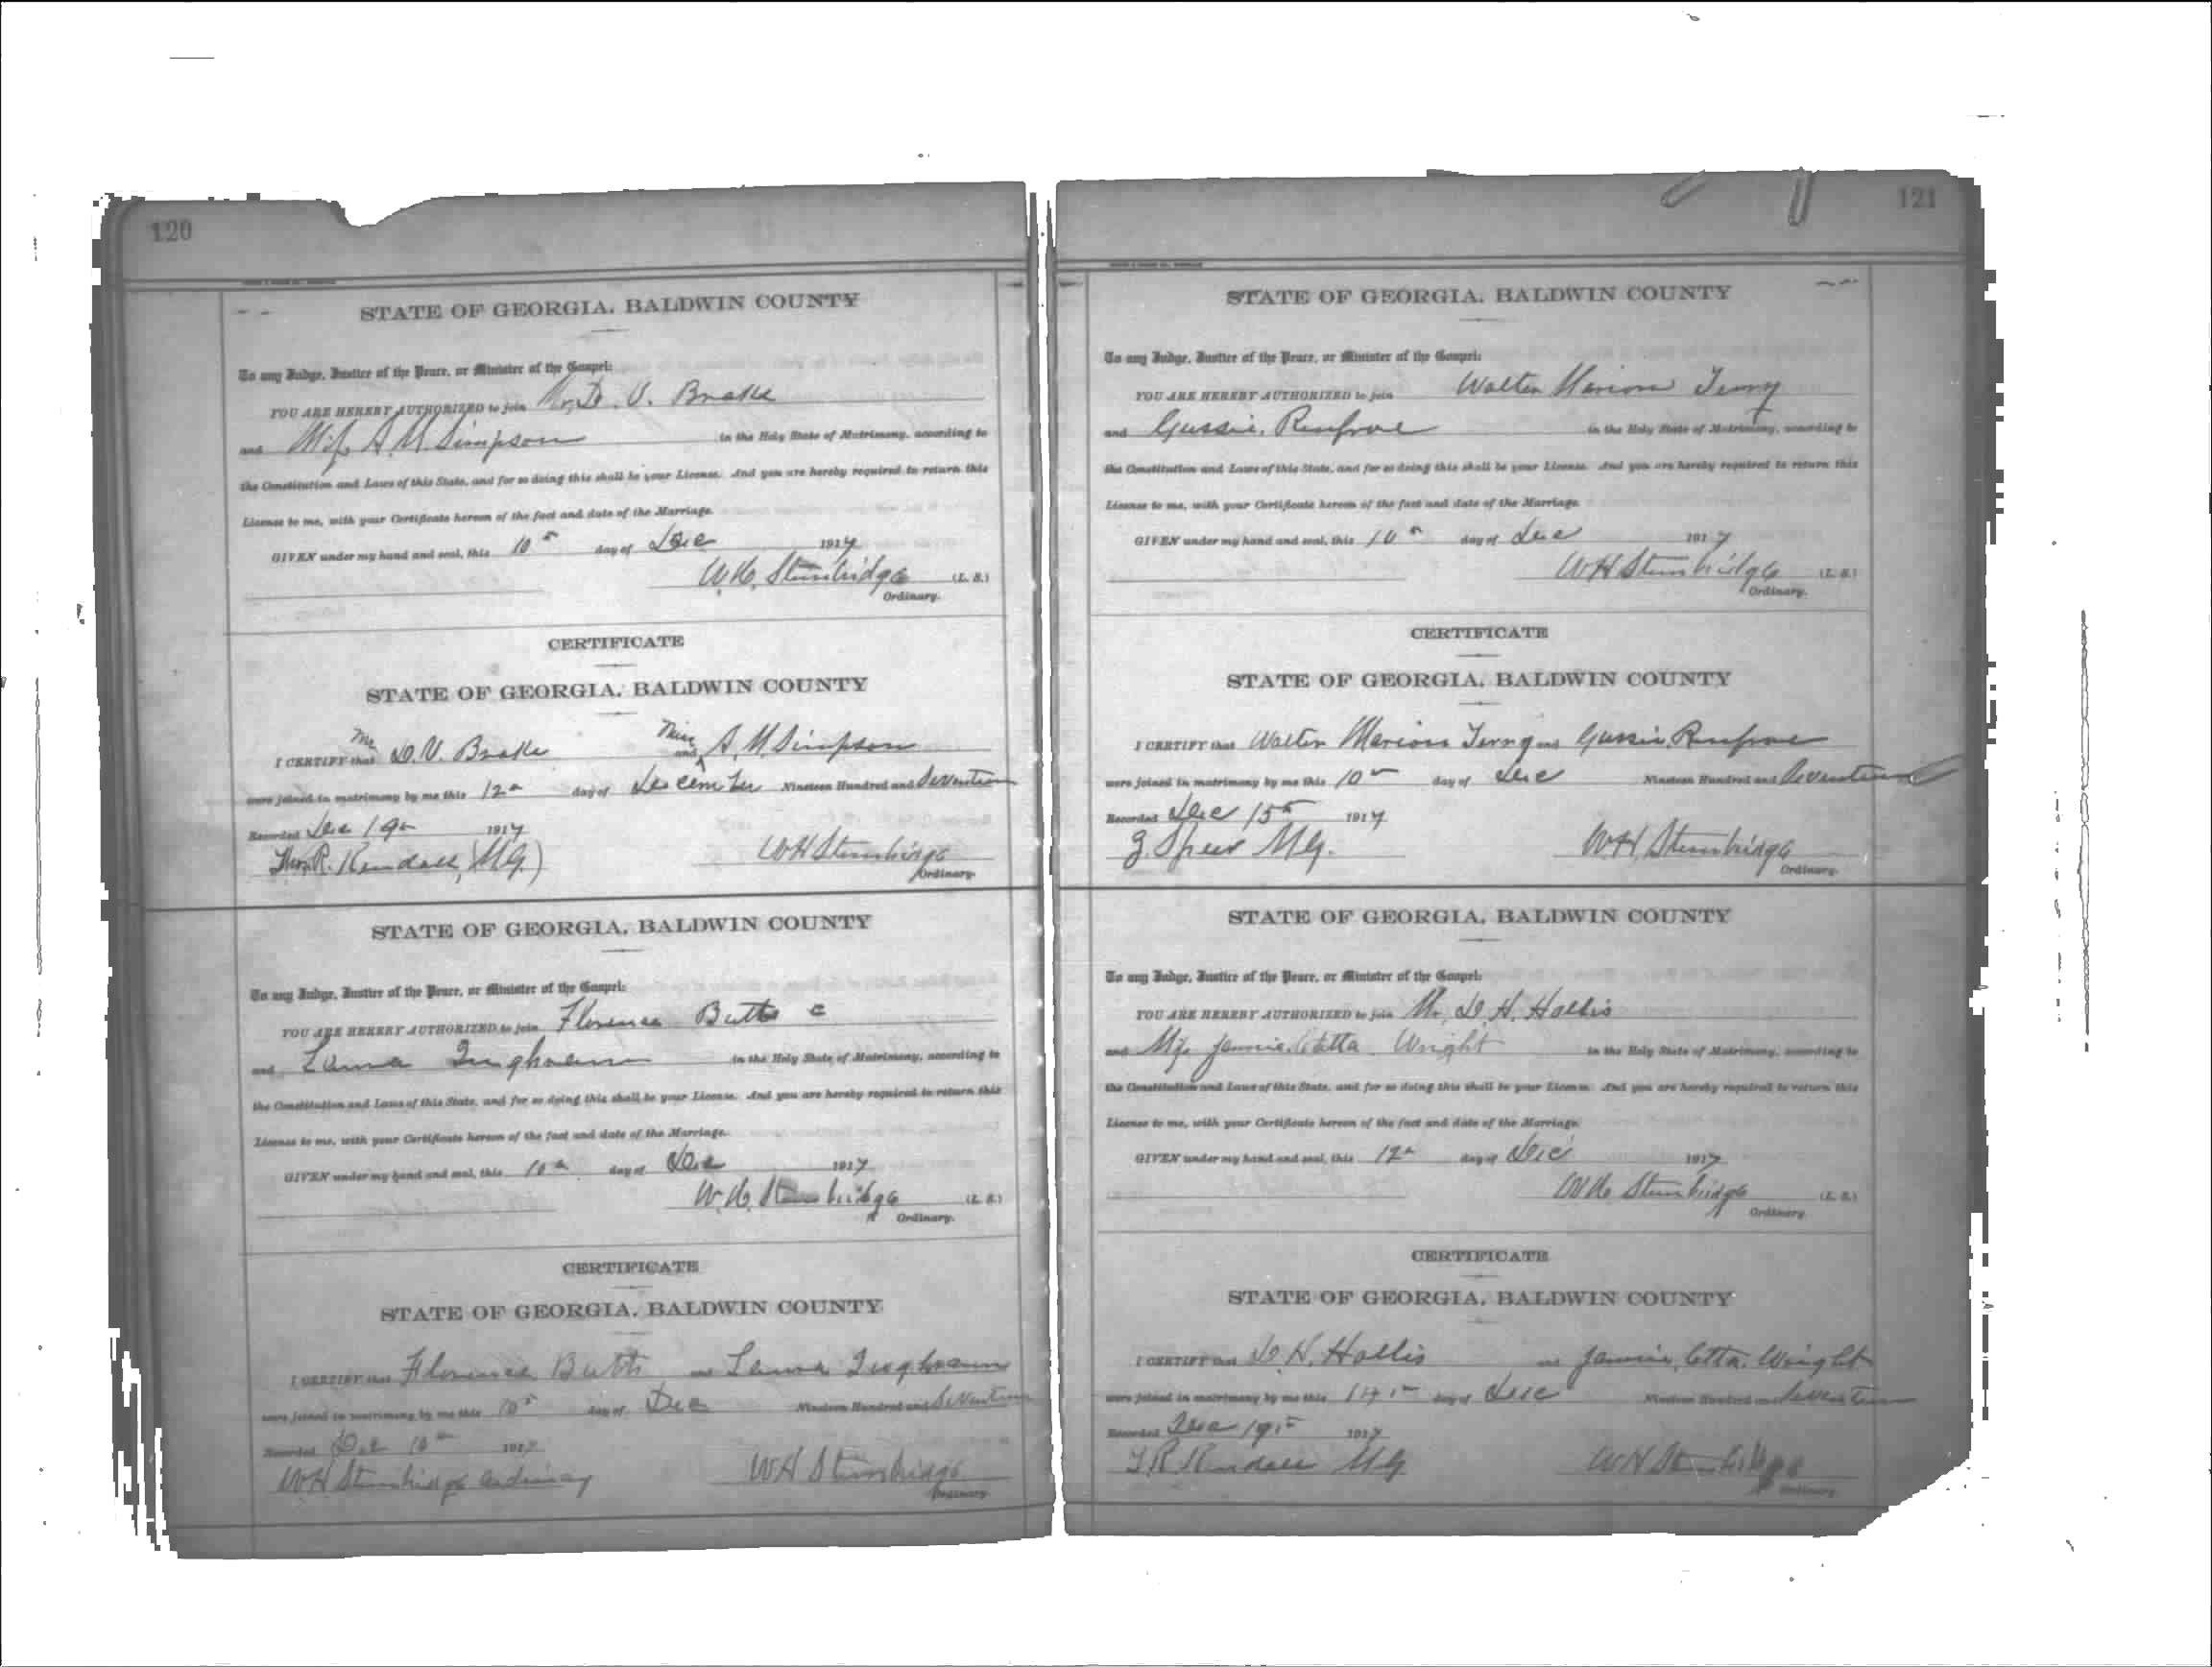 120
STATE OF GEORGIA, BALDWIN COUNTY
To any Judge, Justice of the Peace, or Minister of the Gospel:
YOU ARE HEREBY AUTHORIZED to join Mr. D. V. Brake
and Miss A. M. Simpson in the Holy State of Matrimony, according to
the Constitution and Laws of this State, and for so doing this shall be your License. And you are hereby required to return this
License to me, with your Certificate hereon of the fact and date of the Marriage.
GIVEN under my hand and seal, this 10th day of Dec 1917
W.H. Stembridge (L. S.)
Ordinary.
CERTIFICATE
STATE OF GEORGIA, BALDWIN COUNTY
I CERTIFY that Mr D. V. Brake and Miss A. M. Simpson
were joined in matrimony by me this 12th day of December Nineteen Hundred and Seventeen
Recorded Dec 19th 1917
Thos R. Kendall, M.G.) W H Stembridge
Ordinary.
STATE OF GEORGIA, BALDWIN COUNTY
To any Judge, Justice of the Peace, or Minister of the Gospel:
YOU ARE HEREBY AUTHORIZED to join Florence Butts c
and in the Holy State of Matrimony, according to
the Constitution and Laws of this State, and for so doing this shall be your License. And you are hereby required to return this
License to me, with your Certificate hereon of the fact and date of the Marriage.
GIVEN under my hand and seal, this 10th day of Dec 1917
W.H. Stembridge (L. S.)
Ordinary.
CERTIFICATE
STATE OF GEORGIA, BALDWIN COUNTY
I CERTIFY that Florence Butts and
were joined in matrimony by me this 10th day of Dec Nineteen Hundred and Seventeen
Recorded Dec 10th 1917
W H Stembridge Ordinary W H Stembridge
Ordinary.
121
STATE OF GEORGIA, BALDWIN COUNTY
To any Judge, Justice of the Peace, or Minister of the Gospel:
YOU ARE HEREBY AUTHORIZED to join Walter Marion Terry
and Gussie Renfroe in the Holy State of Matrimony, according to
the Constitution and Laws of this State, and for so doing this shall be your License. And you are hereby required to return this
License to me, with your Certificate hereon of the fact and date of the Marriage.
GIVEN under my hand and seal, this 10th day of Dec 1917
W H Stembridge (L. S.)
Ordinary.
CERTIFICATE
STATE OF GEORGIA, BALDWIN COUNTY
I CERTIFY that Walter Marion Terry and Gussie Renfroe
were joined in matrimony by me this 10th day of Dec Nineteen Hundred and Seventeen
Recorded Dec 15th 1917
Z Speer M.G. W.H. Stembridge
Ordinary.
STATE OF GEORGIA, BALDWIN COUNTY
To any Judge, Justice of the Peace, or Minister of the Gospel:
YOU ARE HEREBY AUTHORIZED to join Mr. D. H. Hollis
and Miss Jennie Etta Wright in the Holy State of Matrimony, according to
the Constitution and Laws of this State, and for so doing this shall be your License. And you are hereby required to return this
License to me, with your Certificate hereon of the fact and date of the Marriage.
GIVEN under my hand and seal, this 12th day of Dec 1917
W H Stembridge (L. S.)
Ordinary.
CERTIFICATE
STATE OF GEORGIA, BALDWIN COUNTY
I CERTIFY that D. H. Hollis and Jennie Etta Wright
were joined in matrimony by me this 14th day of Dec Nineteen Hundred and Seventeen
Recorded Dec 19th 1917
T R Kendall M G W H Stembridge
Ordinary.